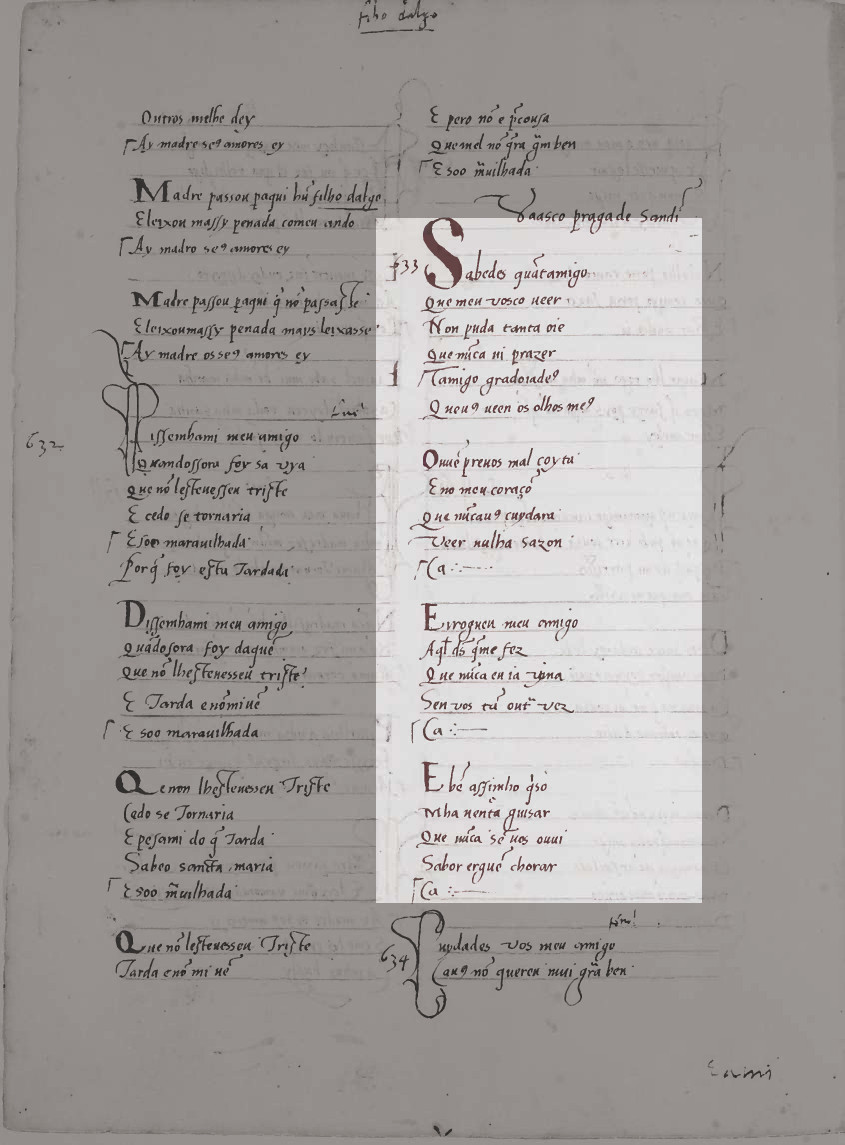 filho dalgo
Outros melhe dey
Ay madre seꝯ amores ey
Madre passou paqui hũ filho dalgo
Eleixou massy penada comeu ando
Ay madro seꝯ amores ey
Madre passou paqui q̃ nõ passasse
Eleixoumassy penada mays leixasse
Ay madre os seꝯ amores ey
632
Dissemhami meu amigo
Quandossora foy sa uya
Que nõ lesteuesseu triste
E cedo se tornaria
E soo marauilhada
Porq̃ foy esta Tardada
Dissemhami meu amigo
Quãdosora foy daquẽ
Que nõ lhesteuesseu triste
E Tarda enõmiuẽ
E soo marauilhada
Que non lhesteuesseu Triste
Cedo se Tornaria
E pesami do q̃ Tarda
Sabeo sancta maria
E soo m̃uilhada
Que nõ lesteuesseu Triste
Tarda enõ mi uẽ
E pero nõ e p̃cousa
Quemel nõ q̃ra g̃m ben
E soo m̃uilhada
Vaasco praga de Sandi
633
Sabedes quãtamigo
Que meu uosco ueer
Non puda tanta oie
Que nũca ui prazer
Tamigo gradoiadeꝯ
Que uꝯ ueen os olhos meꝯ
Ouuẽ preuos mal coyta
Eno meu coraçõ
Que nũcauꝯ cuydara
Veer nulha sazon
Ca
E rogueu meu amigo
Aql̃ ds̃ q̃me fez
Que nũca eu ia uyna
Sen uos tã out̃ uez
Ca
E bẽ assimho q̃so
Mha uentã guisar
Que nũca sẽ uos ouui
Sabor erguẽ chorar
Ca
634
Cuydades uos meu amigo
Cauꝯ nõ quereu mui grã ben